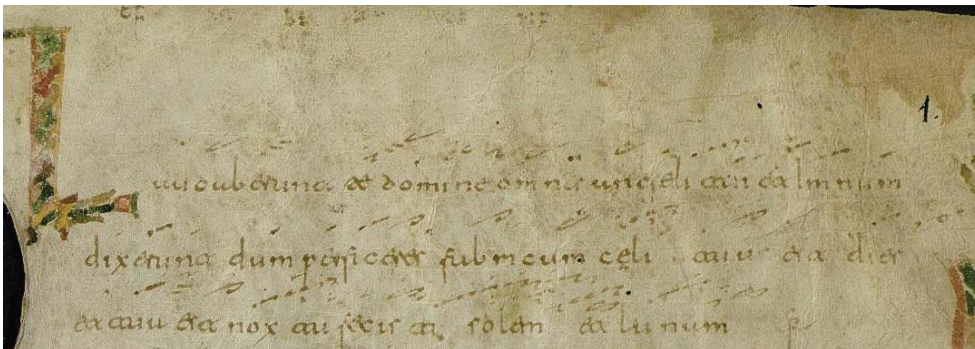 1.
Laudaberunt te domine omnes angeli tui et imnum
dixerunt dum perficeres fabricam celi tuus est dies
et tua est nox tu fecisti solem et lunam